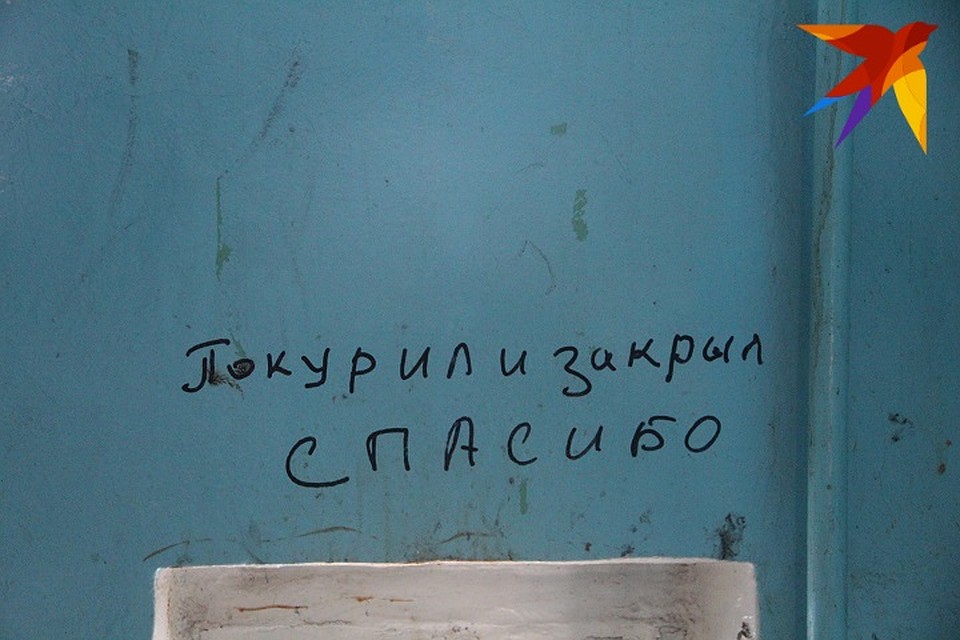 Покурили закрыл
СПАСИБО